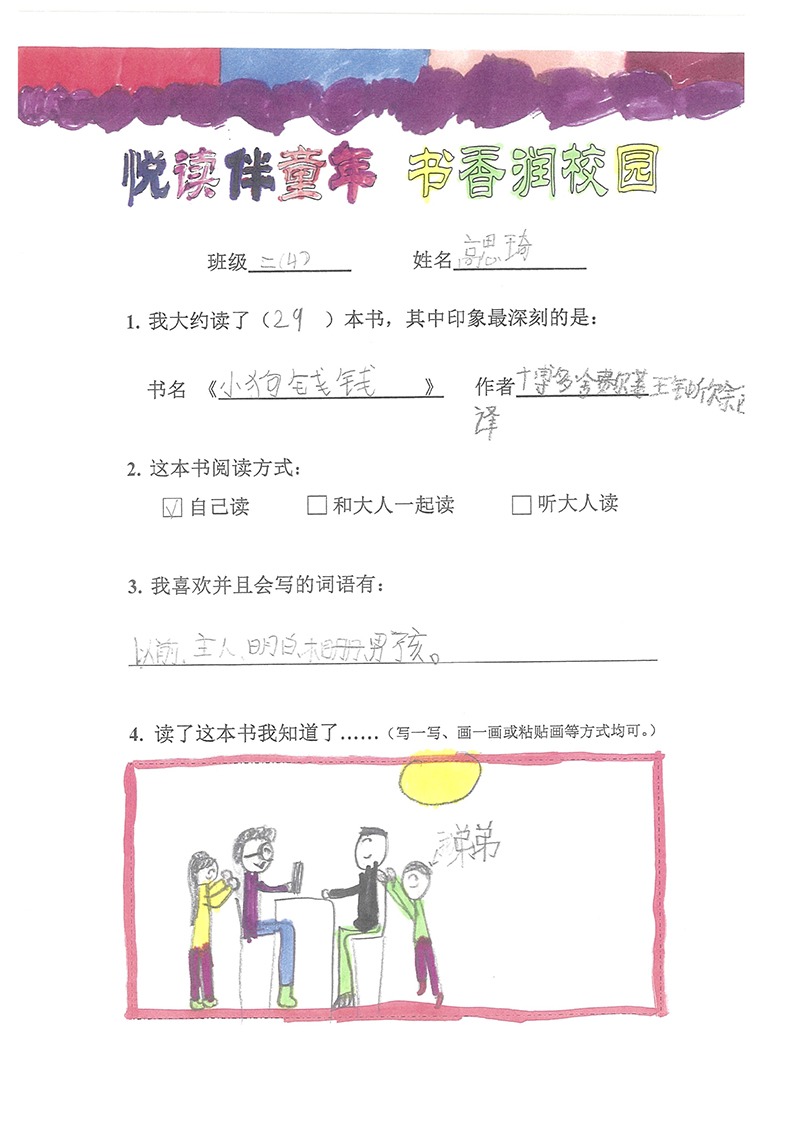 悦读伴童年 书香润校园
班级 二(4) 姓名 高思琦
1. 我大约读了（29）本书，其中印象最深刻的是：
书名《小狗钱钱》 作者 博多 舍费尔著 王钟欣
译
2. 这本书阅读方式：
☑自己读 □和大人一起读 □听大人读
3. 我喜欢并且会写的词语有：
以前、主人、明白、相册、男孩。
4. 读了这本书我知道了……（写一写、画一画或粘贴画等方式均可。）
弟弟